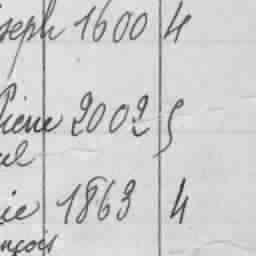 seph 1600 4
Pierre 2002 5
el
ie 1863 4
nçois